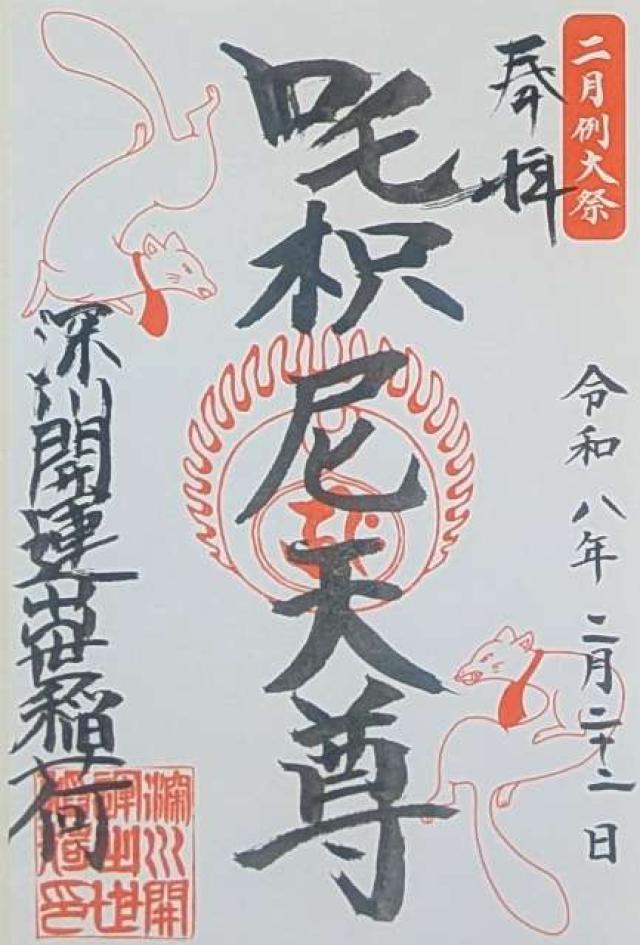 二月例大祭
奉拝
令和八年二月二十二日
吒枳尼天尊
深川開運出世稲荷
深川開
運出世
稲荷印